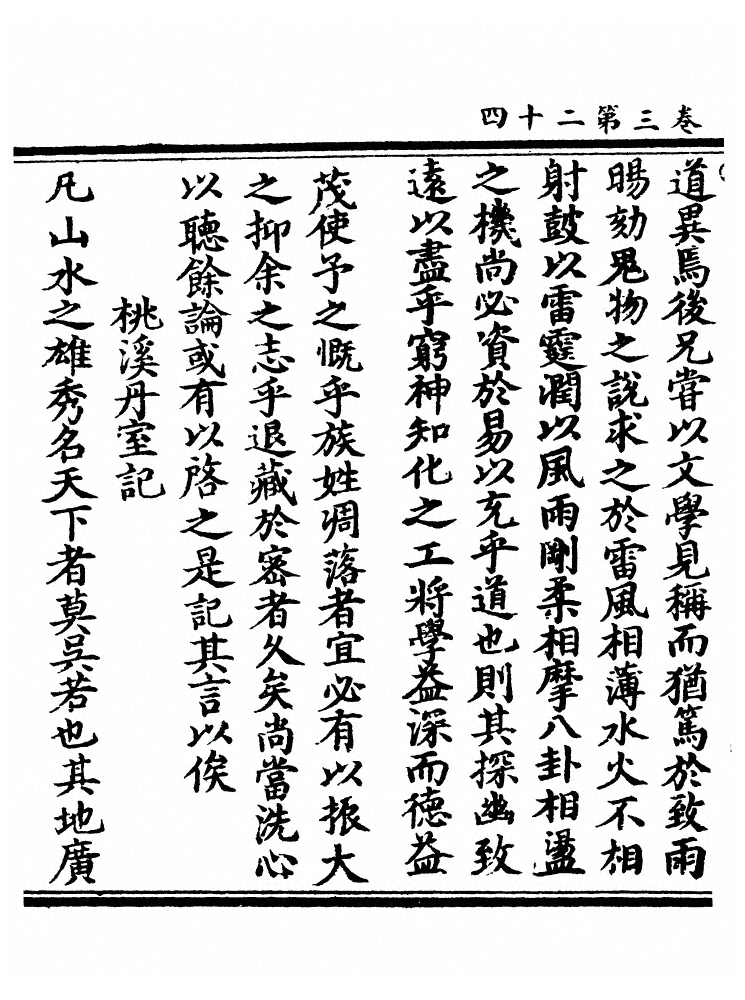 卷三第二十四
道異焉後兄嘗以文學見稱而猶篤於致雨
暘劾鬼物之說求之於雷風相薄水火不相
射鼓以雷霆潤以風雨剛柔相摩八卦相盪
之機尚必資於易以充乎道也則其探幽致
遠以盡乎窮神知化之工將學益深而德益
茂使予之慨乎族姓凋落者宜必有以振大
之抑余之志乎退藏於密者久矣尚當洗心
以聽餘論或有以啓之是記其言以俟
桃溪丹室記
凡山水之雄秀名天下者莫吳若也其地廣